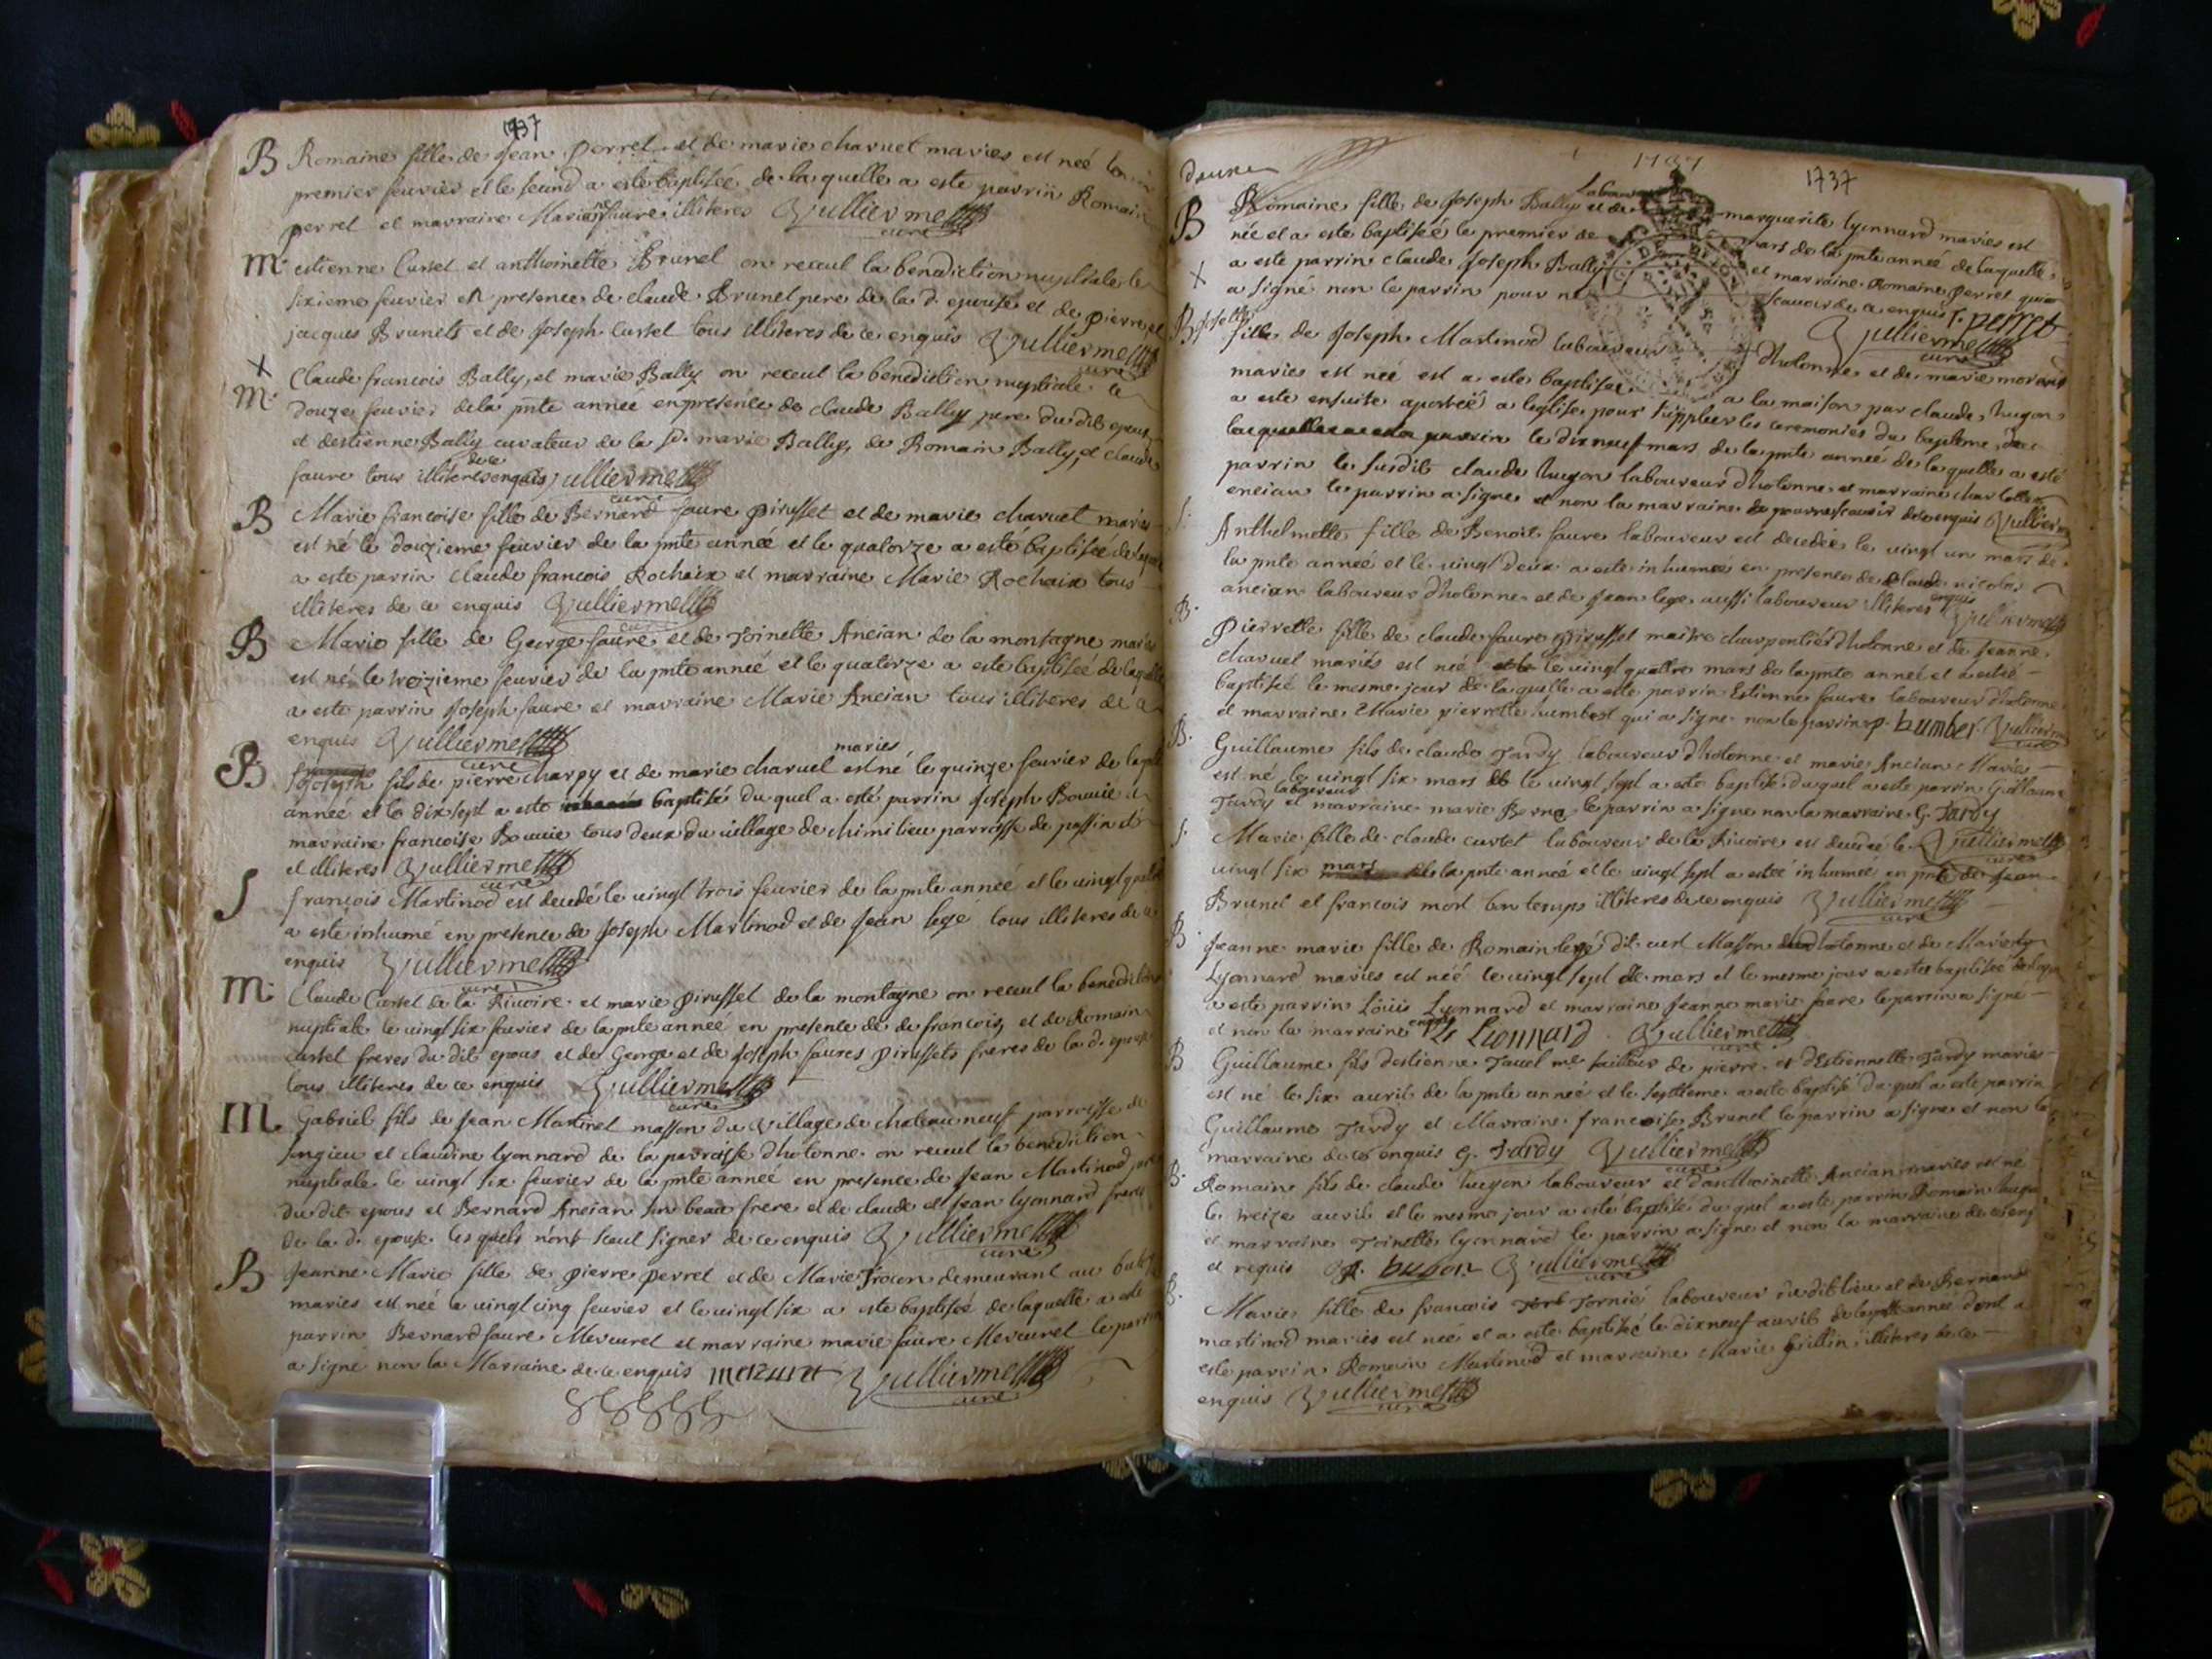 1737
B Romaine fille de Jean Perret et de marie charuet maries est neé
premier feurier et le second a este baptiseé de laquelle a este parrin Romain
perret et marraine Marie faure illiteres Vulliermet curé
M estienne Curtet et anthoinette Brunel on receul la benediction nuptiale le
sixieme feurier en presence de claude Brunel pere de la d. epouse et de pierre et
jacques Brunels et de Joseph Curtet tous illiteres de ce enquis Vulliermet curé
X
M Claude francois Bally, et marie Bally on receul la benediction nuptiale le
douze feurier de la pnte anneé en presence de claude Bally pere du dit epous
et destienne Bally curateur de la sd. marie Bally, de Romain Bally, et claude
faure tous illiteres de ce enquis Vulliermet curé
B Marie francoise fille de Bernard faure pirusset et de marie charuet maries
est né le douzieme feurier de la pnte anneé et le quatorze a este baptiseé de laquelle
a este parrin claude francois Rochaix et marraine Marie Rochaix tous
illiteres de ce enquis Vulliermet curé
B Marie fille de George faure et de Toinette Ancian de la montagne maries
est né le treizieme feurier de la pnte anneé et le quatorze a este baptiseé de laquelle
a este parrin Joseph faure et marraine Marie Ancian tous illiteres de ce
enquis Vulliermet curé
B Joseph fils de pierre charpy et de marie charuel maries est né le quinze feurier de la pnte
anneé et le dix sept a este baptisé du quel a esté parrin Joseph Bouuie et
marraine francoise Bouuie tous deux du uillage de chimilieu parroisse de passin
et illiteres Vulliermet curé
S francois Martinod est decedé le uingt trois feurier de la pnte anneé et le uingt quatre
a este inhumé en presence de Joseph Martinod et de Jean legé tous illiteres de ce
enquis Vulliermet curé
M Claude Curtet de la Riuoire et marie pirusset de la montagne on receul la benediction
nuptiale le uingt six feurier de la pnte anneé en presence de de francois et de Romain
curtet freres du dit epous et de George et de Joseph faures pirussets freres de la d. epouse
tous illiteres de ce enquis Vulliermet curé
M Gabriel fils de Jean Martinel masson du Village de chateauneuf parroisse de
songieu et claudine lyonnard de la parroisse dhotonne on receul la benediction
nuptiale le uingt six feurier de la pnte anneé en presence de Jean Martinod pere
du dit epous et Bernard Ancian son beau frere et de claude et Jean lyonnard freres
de la d. epouse les quels n'ont sceut signer de ce enquis Vulliermet curé
B Jeanne Marie fille de pierre perret et de Marie demeurant au
maries est neé le uingt cinq feurier et le uingt six a este baptiseé de laquelle a este
parrin Bernard faure Mercuret et marraine marie faure Mercuret le parrin
a signé non la Marraine de ce enquis merzuret Vulliermet curé
1737
1737
B Romaine fille de Joseph Bally laboureur et de marguerite lyonnard maries est
neé et a este baptiseé le premier de mars de la pnte anneé de laquelle
X a este parrin claude Joseph Bally et marraine Romaine perret qui
a signé non le parrin pour ne scauoir de ce enquis r. perret
Vulliermet curé
B Josette fille de Joseph Martinod laboureur dhotonne et de marie morand
maries est neé est a este baptiseé a la maison par claude hugon
a este ensuite aportéé a leglise pour suppleer les ceremonies du baptême
le dix neuf mars de la pnte anneé de laquelle a esté
parrin le susdit claude hugon laboureur dhotonne et marraine charlotte
encian le parrin a signe et non la marraine pour ne scauoir de ce enquis Vulliermet
S. Anthelmette fille de Benoit faure laboureur est decedeé le uingt un mars de
la pnte anneé et le uingt deux a este inhumeé en presence de claude nicolas
ancian laboureur dhotonne et de Jean legé aussi laboureur illiteres enquis Vulliermet
B. Pierrette fille de claude faure pirusset maitre charpentier dhotonne et de Jeanne
charuel mariés est neé le uingt quattre mars de la pnte anneé et a esteé
baptiseé le mesme jour de laquelle a este parrin Estienne faure laboureur dhotonne
et marraine Marie pierrette humbert qui a signe non le parrin p. humber Vulliermet curé
B. Guillaume fils de claude Tardy laboureur dhotonne et marie Ancian Maries
est né le uingt six mars et le uingt sept a este baptisé du quel a este parrin Guillaume
Tardy laboureur et marraine marie Borne le parrin a signe non la marraine G. Tardy
Vulliermet curé
S. Marie fille de claude curtet laboureur de la Riuoire est decedeé le
uingt six mars de la pnte anneé et le uingt sept a esteé inhumeé en pnce de Jean
Brunel et francois mort bon temps illiteres de ce enquis Vulliermet curé
B. Jeanne marie fille de Romain legé dit uert Masson dhotonne et de
Lyonnard maries est neé le uingt sept de mars et le mesme jour a este baptiseé
a este parrin Loüis Lyonnard et marraine Jeanne marie faure le parrin a signé
et non la marraine enquis Ls Lionnard Vulliermet curé
B Guillaume fils destienne Tauel me tailleur de pierre et d'Estiennette Tardy maries
est né le six auril de la pnte anneé et le septieme a este baptisé du quel a este parrin
Guillaume Tardy et Marraine francoise Brunel le parrin a signe et non la
marraine de ce enquis G. Tardy Vulliermet curé
B. Romain fils de claude hugon laboureur et d'anthoinette Ancian maries est né
le treize auril et le mesme jour a este baptisé du quel a este parrin Romain hugon
et marraine Toinette lyonnard le parrin a signe et non la marraine de ce enquis
et requis R. hugon Vulliermet curé
B. Marie fille de francois Tornié laboureur du dit lieu et de Bernarde
martinod maries est neé et a este baptiseé le dix neuf auril de la pnte anneé dont a
este parrin Romain Martinod et marraine Marie Guillin illiteres de ce
enquis Vulliermet curé